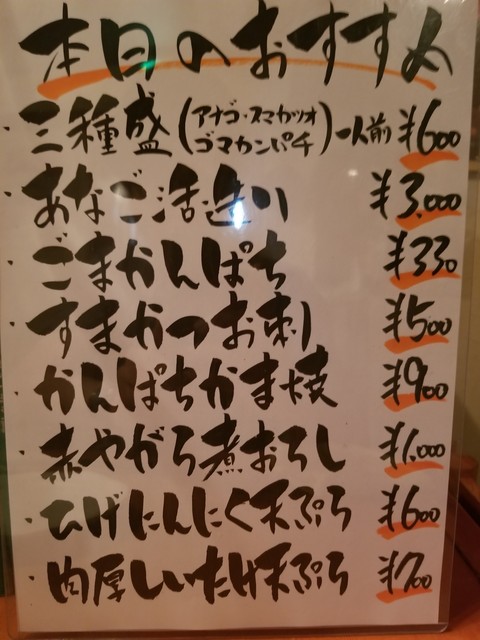 本日のおすすめ
・三種盛(アナゴ・スマカツオ ゴマカンパチ)一人前 ¥600
・あなご活造り ¥3,000
・ごまかんぱち ¥330
・すまかつお刺 ¥500
・かんぱちかま焼 ¥900
・赤やがら煮おろし ¥1,000
・ひげにんにく天ぷら ¥600
・肉厚しいたけ天ぷら ¥700